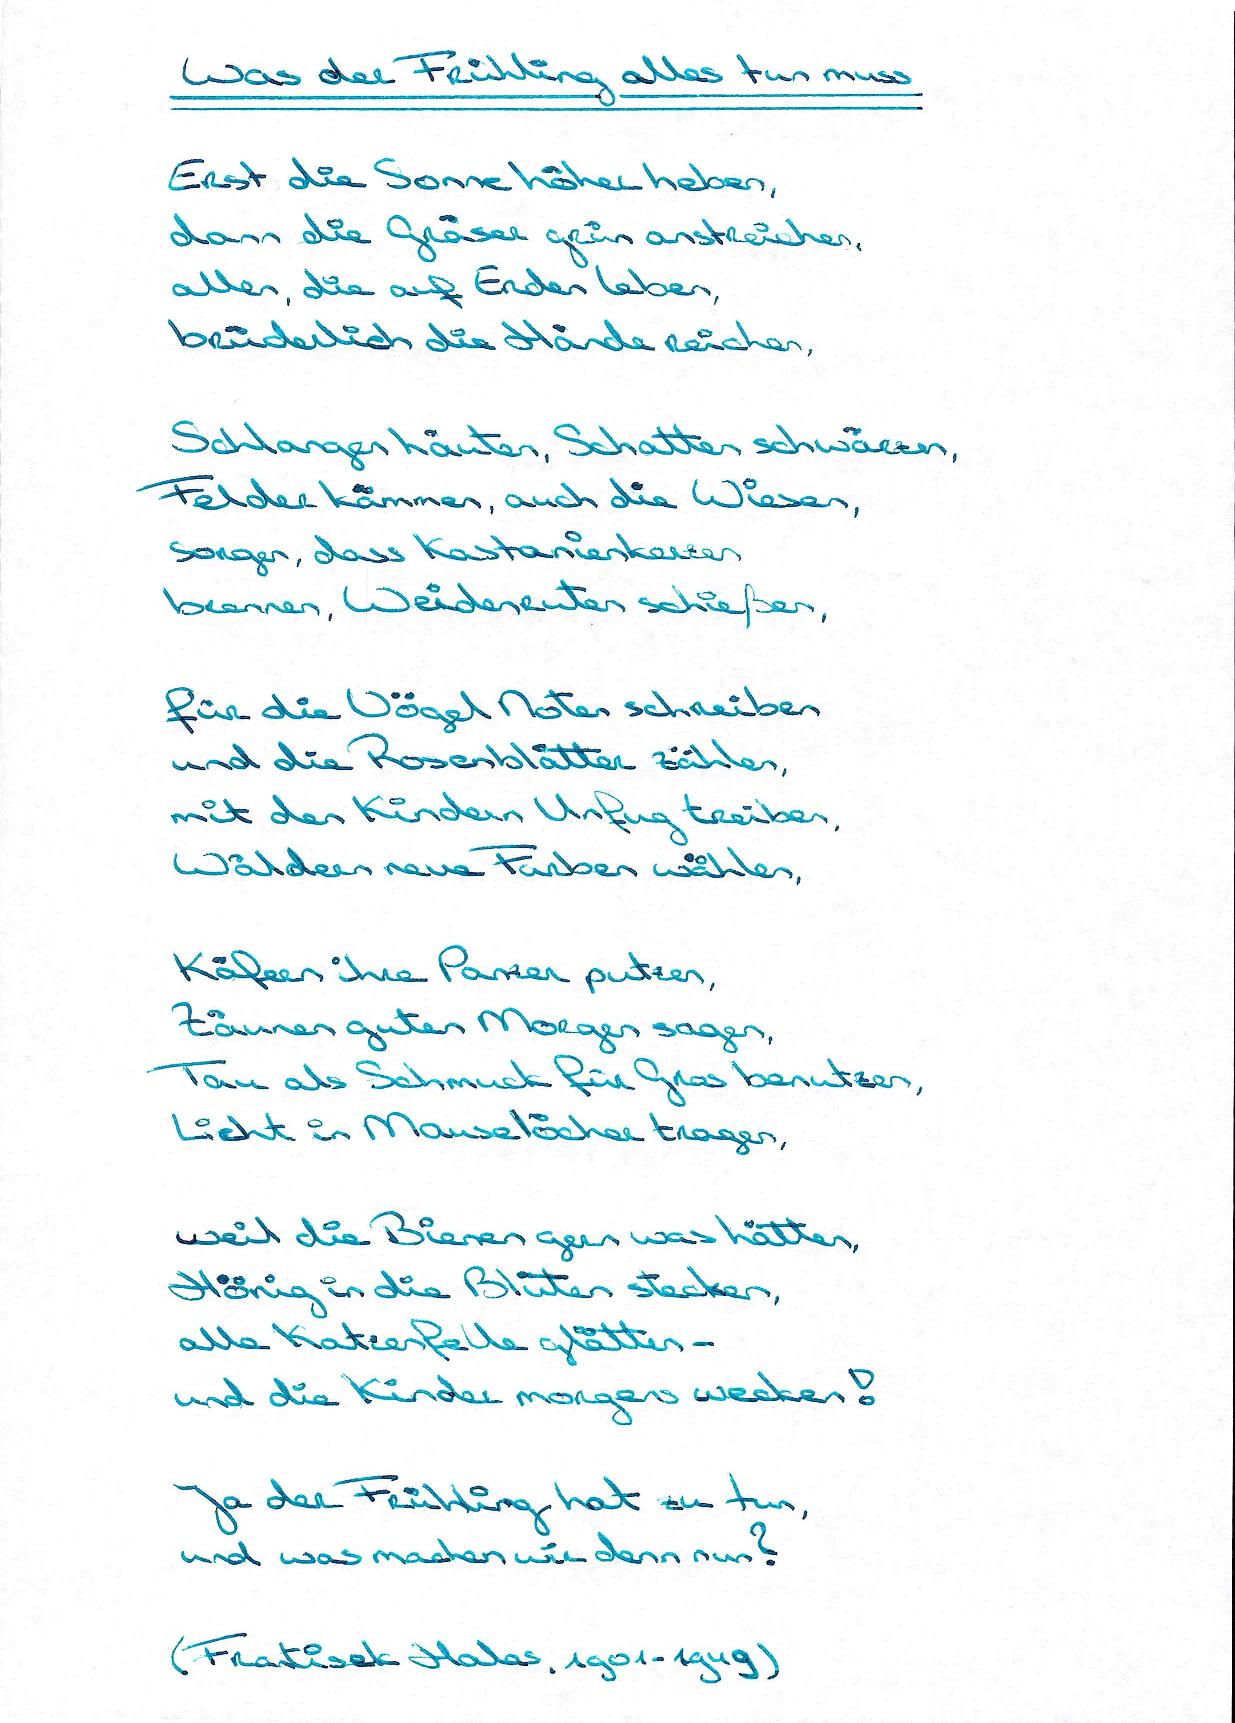 Was der Frühling alles tun muss
Erst die Sonne höher heben,
dann die Gräser grün anstreichen,
allen, die auf Erden leben,
brüderlich die Hände reichen,
Schlangen häuten, Schatten schwärzen,
Felder kämmen, auch die Wiesen,
sorgen, dass Kastanienkerzen
brennen, Weidenruten schießen,
für die Vögel Noten schreiben
und die Rosenblätter zählen,
mit den Kindern Unfug treiben,
Wäldern neue Farben wählen,
Käfern ihre Panzer putzen,
Zäunen guten Morgen sagen,
Tau als Schmuck für Gras benutzen,
Licht in Mauselöcher tragen,
weil die Bienen gern was hätten,
Hönig in die Blüten stecken,
alle Katzenfelle glätten -
und die Kinder morgens wecken!
Ja der Frühling hat zu tun,
und was machen wir denn nun?
(Fratisek Halas, 1901-1949)